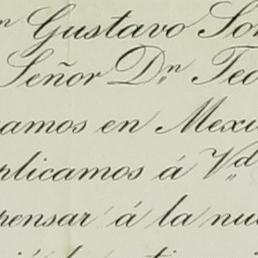 n Gustavo So
Señor Dn Teo
amos en Mexi
plicamos á Vd
pensar á la nu